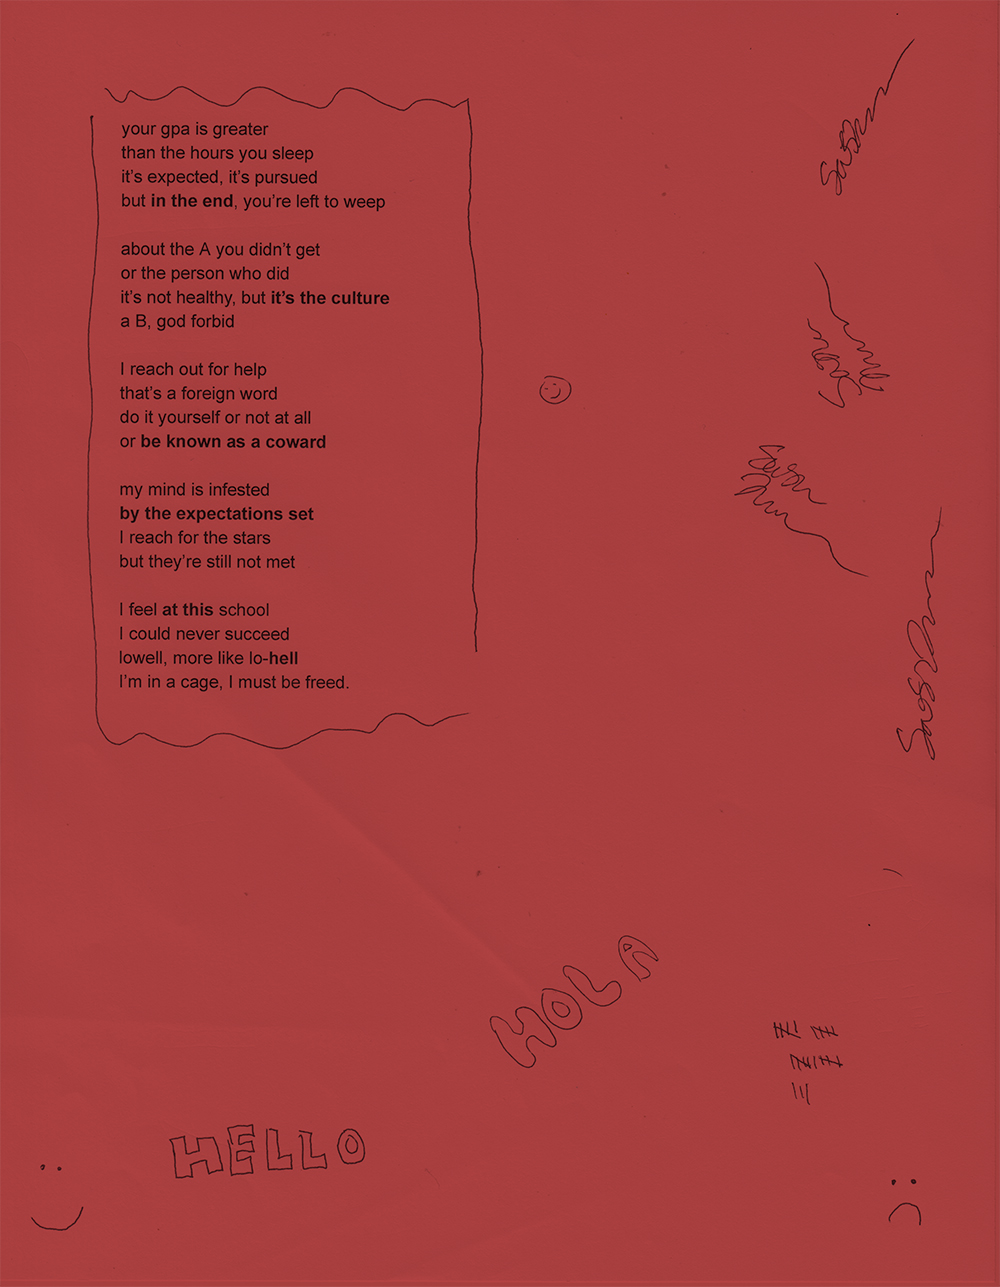 your gpa is greater
than the hours you sleep
it’s expected, it’s pursued
but in the end, you’re left to weep

about the A you didn’t get
or the person who did
it’s not healthy, but it’s the culture
a B, god forbid

I reach out for help
that’s a foreign word
do it yourself or not at all
or be known as a coward

my mind is infested
by the expectations set
I reach for the stars
but they’re still not met

I feel at this school
I could never succeed
lowell, more like lo-hell
I’m in a cage, I must be freed.

HOLA
HELLO